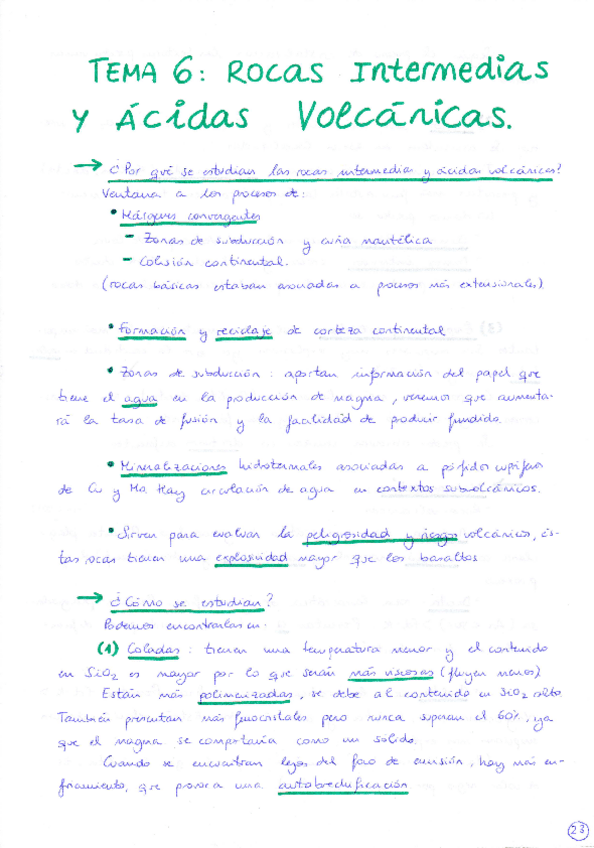 TEMA 6: ROCAS INTERMEDIAS
Y ÁCIDAS VOLCÁNICAS.
→ ¿Por qué se estudian las rocas intermedias y ácidas volcánicas?
Ventana a los procesos de:
• Márgenes convergentes
- Zonas de subducción y cuña mantélica
- Colisión continental.
(rocas básicas estaban asociadas a procesos más extensionales)
• Formación y reciclaje de corteza continental
• Zonas de subducción: aportan información del papel que
tiene el agua en la producción de magma, veremos que aumenta-
rá la tasa de fusión y la facilidad de producir fundido.
• Mineralizaciones hidrotermales asociadas a pórfidos cupríferos
de Cu y Mo. Hay circulación de agua en contextos subvolcánicos.
• Sirven para evaluar la peligrosidad y riesgo volcánicos, és-
tas rocas tienen una explosividad mayor que los basaltos
→ ¿Cómo se estudian?
Podemos encontrarlas en:
(1) Coladas: tienen una temperatura menor y el contenido
en SiO2 es mayor por lo que serán más viscosas (fluyen menos)
Están más polimerizadas, se debe al contenido en SiO2 alto.
También presentan más fenocristales pero nunca superan el 60%, ya
que el magma se comportaría como un sólido.
Cuando se encuentran lejos del foco de emisión, hay más en-
friamiento, que provoca una autobrechificación
23